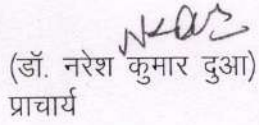 (डॉ. नरेश कुमार दुआ)
प्राचार्य